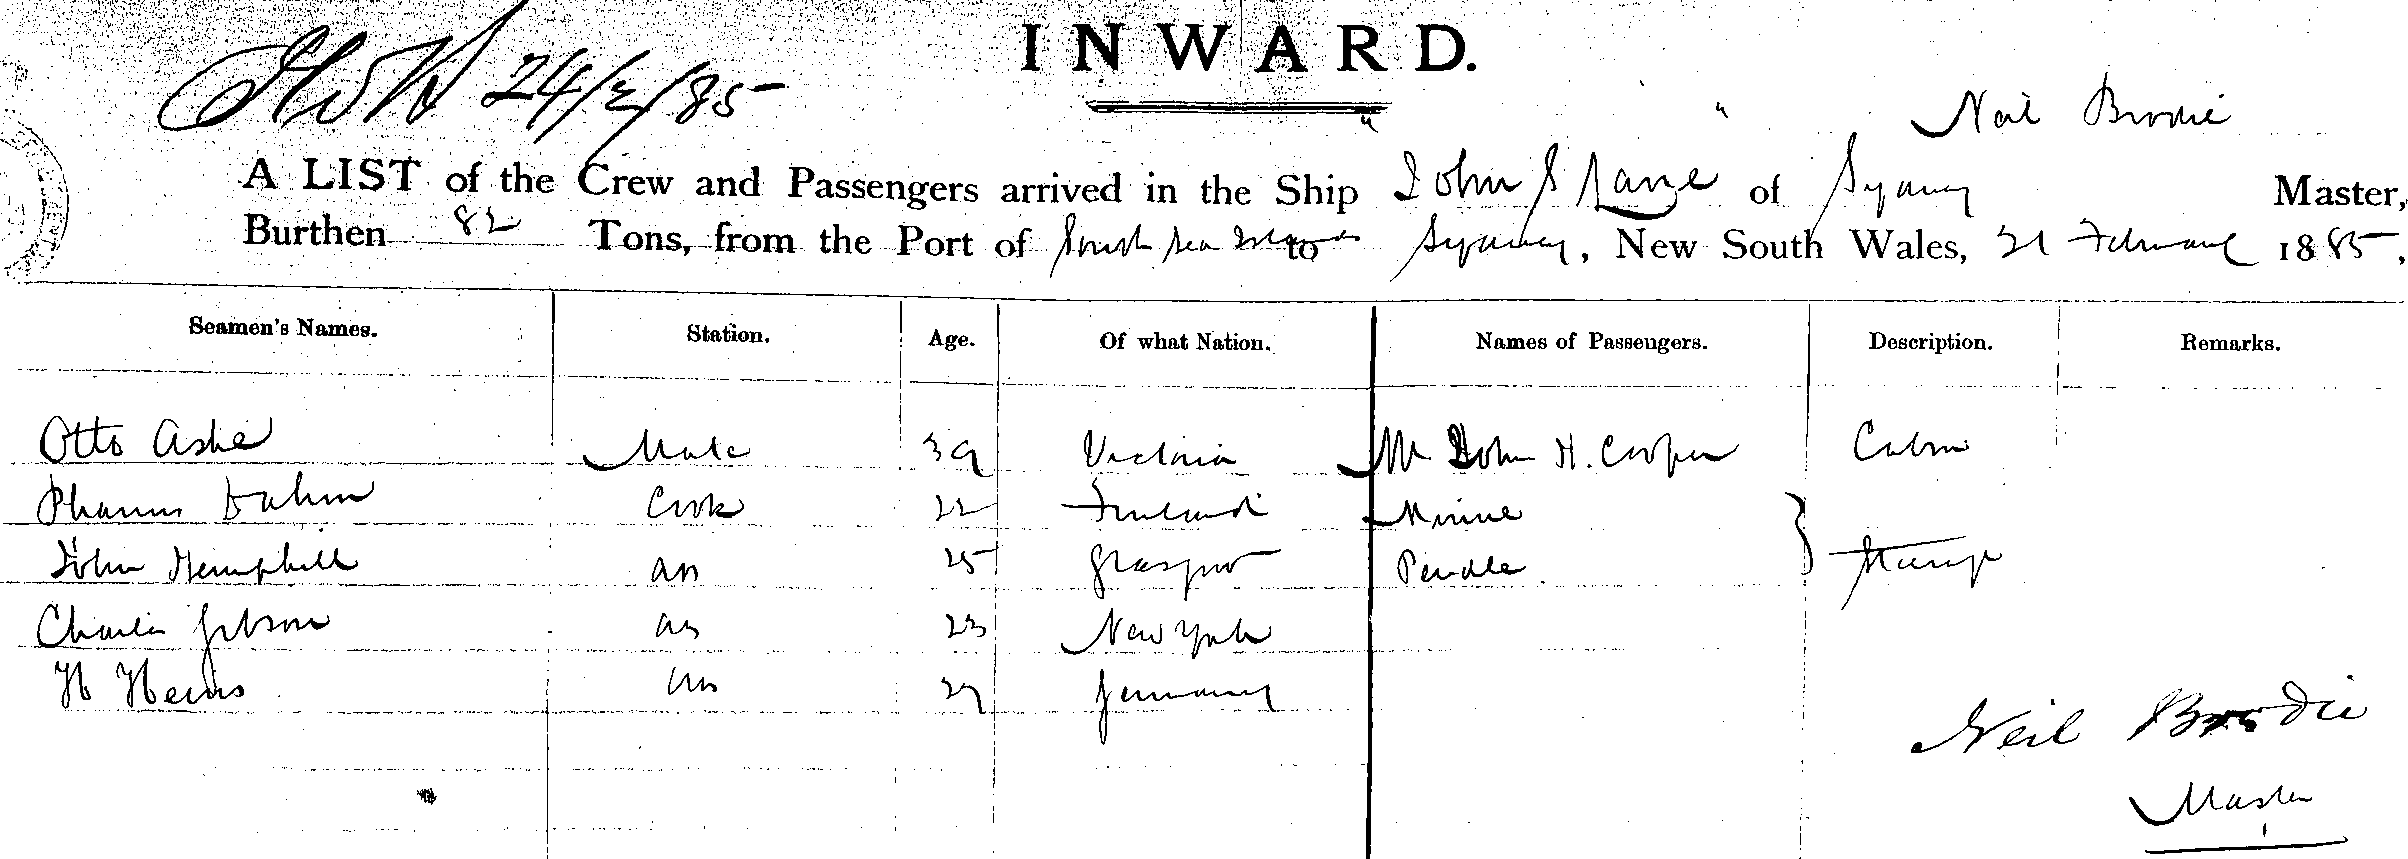 24/2/85
INWARD.
Neil Brodie
A LIST of the Crew and Passengers arrived in the Ship "John S Lane" of Sydney Master,
Burthen 82 Tons, from the Port of South Sea Islands to Sydney, New South Wales, 21 February 1885,
Seamen's Names. Station. Age. Of what Nation. Names of Passengers. Description. Remarks.
Otto Ashe Mate 39 Victoria Mr John H. Cooper Cabin
22 Cook Finland Ninine
John Hemphill AB 25 Glasgow Pendle } Steerage
Charles Gibson AB 23 New York
H Heins AB 27 Germany
Neil Brodie
Master